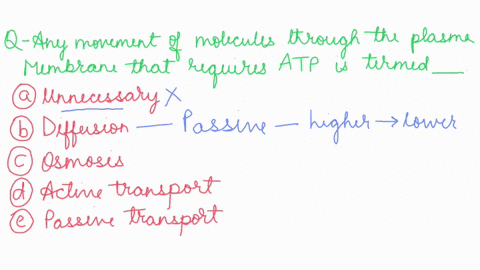 Q-Any movement of molecules through the plasma
Membrane that requires ATP is termed___
a Unnecessary X
b Diffusion — Passive — higher → lower
c Osmosis
d Active transport
e Passive transport